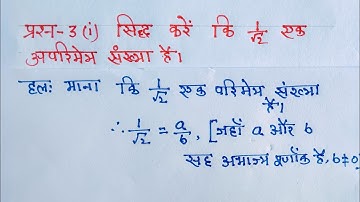 प्रश्न-3 (i) सिद्ध करें कि 1/√2 एक
अपरिमेय संख्या है।
हलः माना कि 1/√2 एक परिमेय संख्या
है।
∴ 1/√2 = a/b, [जहाँ a और b
सह अभाज्य पूर्णांक हैं, b≠0]